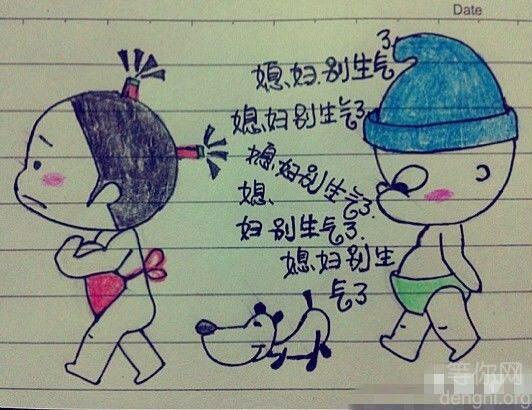 Date
媳妇别生气了
媳妇别生气了
媳妇别生气了
媳、
妇别生气了.
媳妇别生
气了
等你网
dengni.org